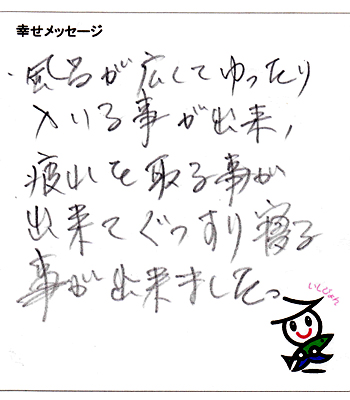 幸せメッセージ
風呂が広くてゆったり
入いる事が出来、
疲れを取る事が
出来てぐっすり寝る
事が出来ました。